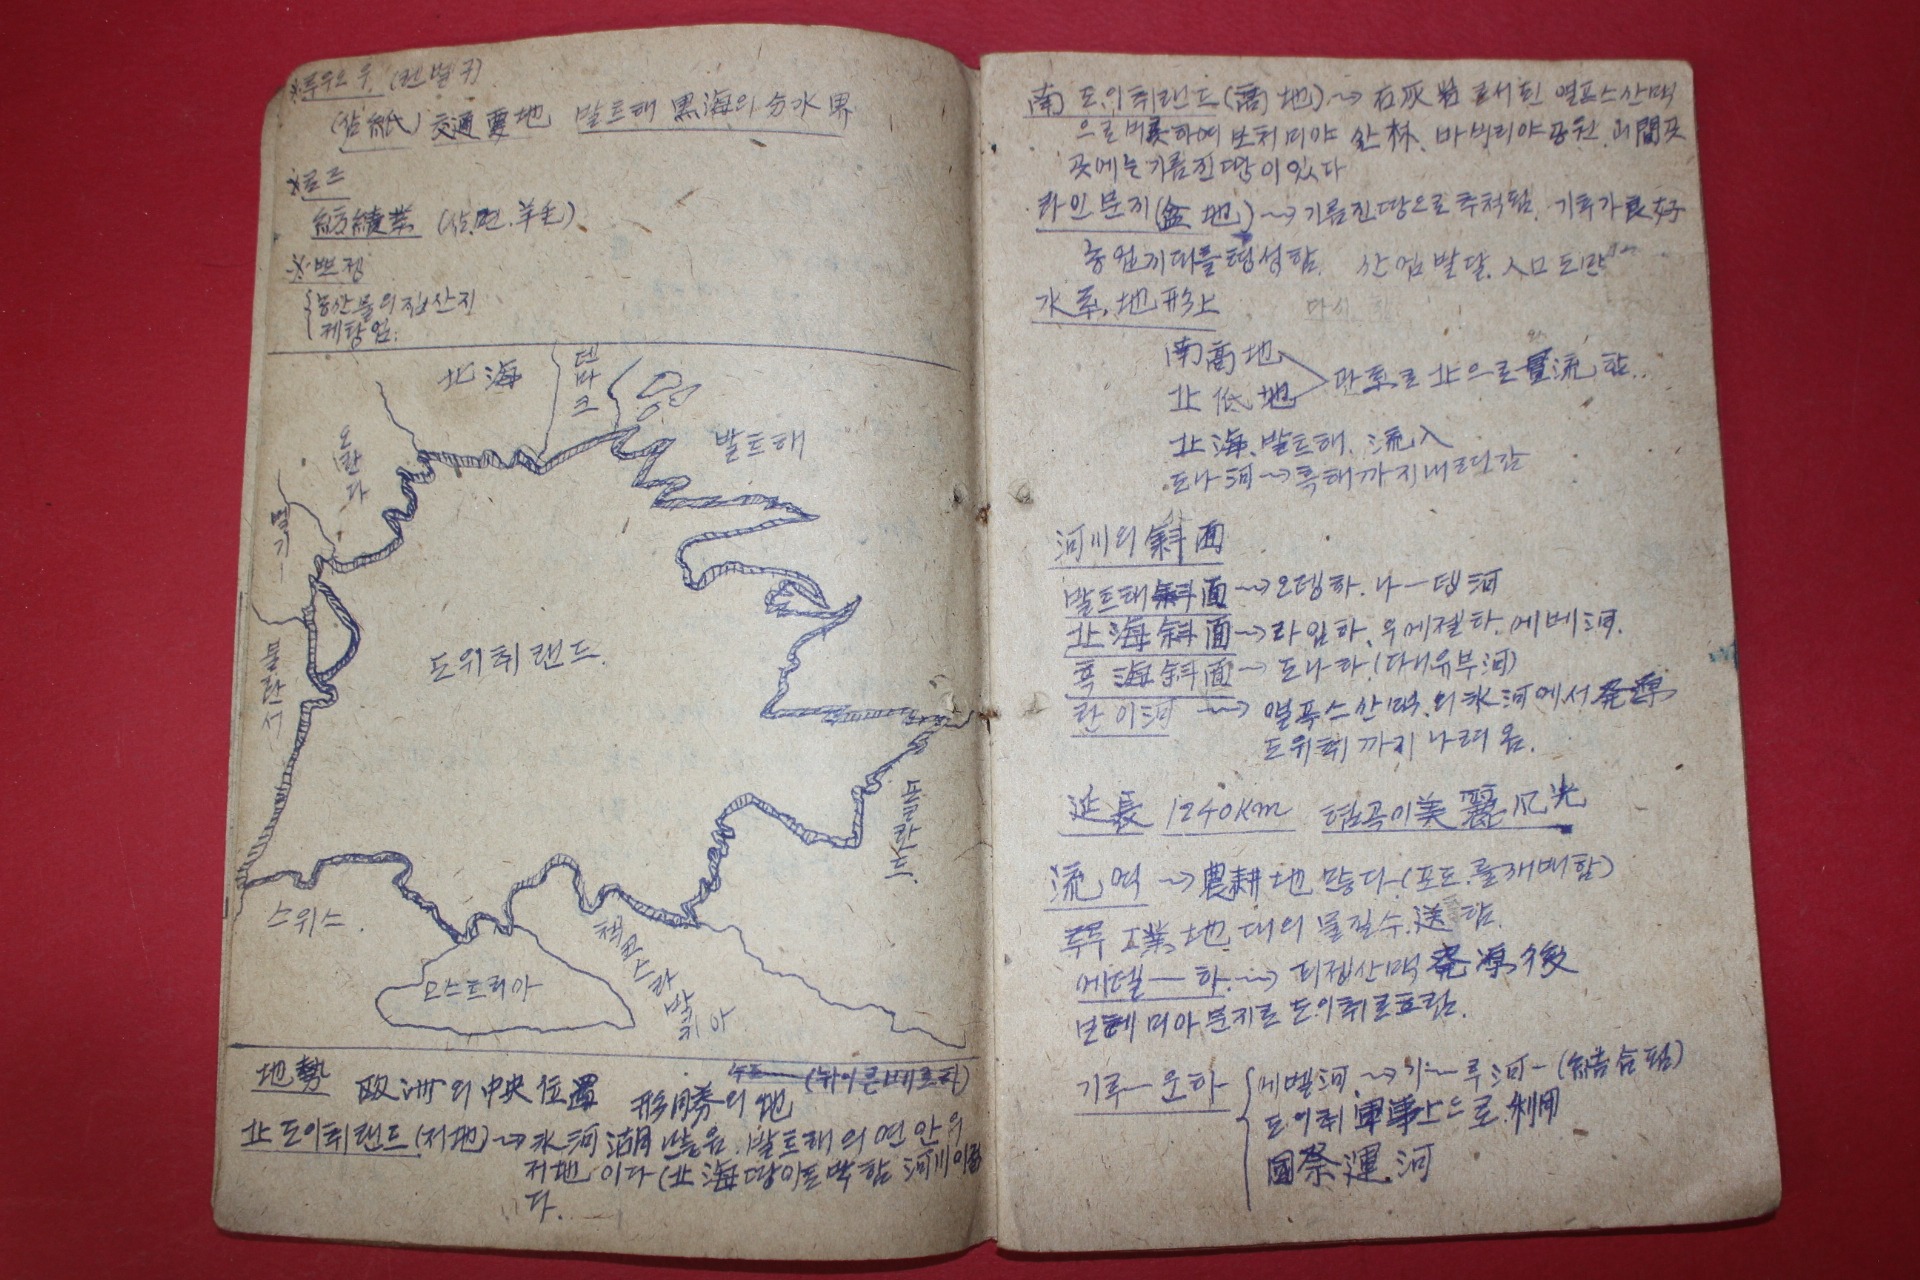 交通要地 발트해 黑海의 分水界
※로드
紡績業
※쁘정
농산물의 집산지
제탕업.
北海
덴마크
발트해
오란다
벨기
불란서
도위취랜드.
폴란드.
스위스.
오스트리아
첵코스라바키아
地勢 歐洲의 中央位置 形勝의 地
北 도이취랜드(저地)~→氷河湖 많음. 발트해의 연안의
저地이다(北海 땅이 토박함 河川이
다.
南 도이취랜드(高地)~→石灰岩 로서 된 앨프스산맥
으로 보헤미야 山林. 바바리야 공원. 山間곳
곳에는 기름진 땅이 있다
라인 분지(盆地)~→기름진 땅으로 추적됨. 기후가 良好
중원지대를 형성함. 산업발달. 人口
水系, 地形上
南高地
北低地 北으로 流함.
北海. 발트해. 流入
도나河~→흑해까지 내려감
河川의 斜面
발트해斜面~→오뎅하. 나ー뎁河
北海斜面~→라인하. 우에젤하. 에베河.
흑海斜面~→도나하.(다뉴부河)
라이河~→앨프스산맥의 氷河에서 発源
도위취까지 나려옴.
延長 1240Km 협곡이 美麗 風光
流역~→農耕地 많다-(포도.를 재배함)
루루 工業地대의 물질수送함.
에델ー하~→피젭산맥 発源後
보헤미아 분지로 도이취로 흐름.
기루ー운하 에벨河~→기ー루河-(結合됨)
도이취 軍事上으로 利用
國際運河